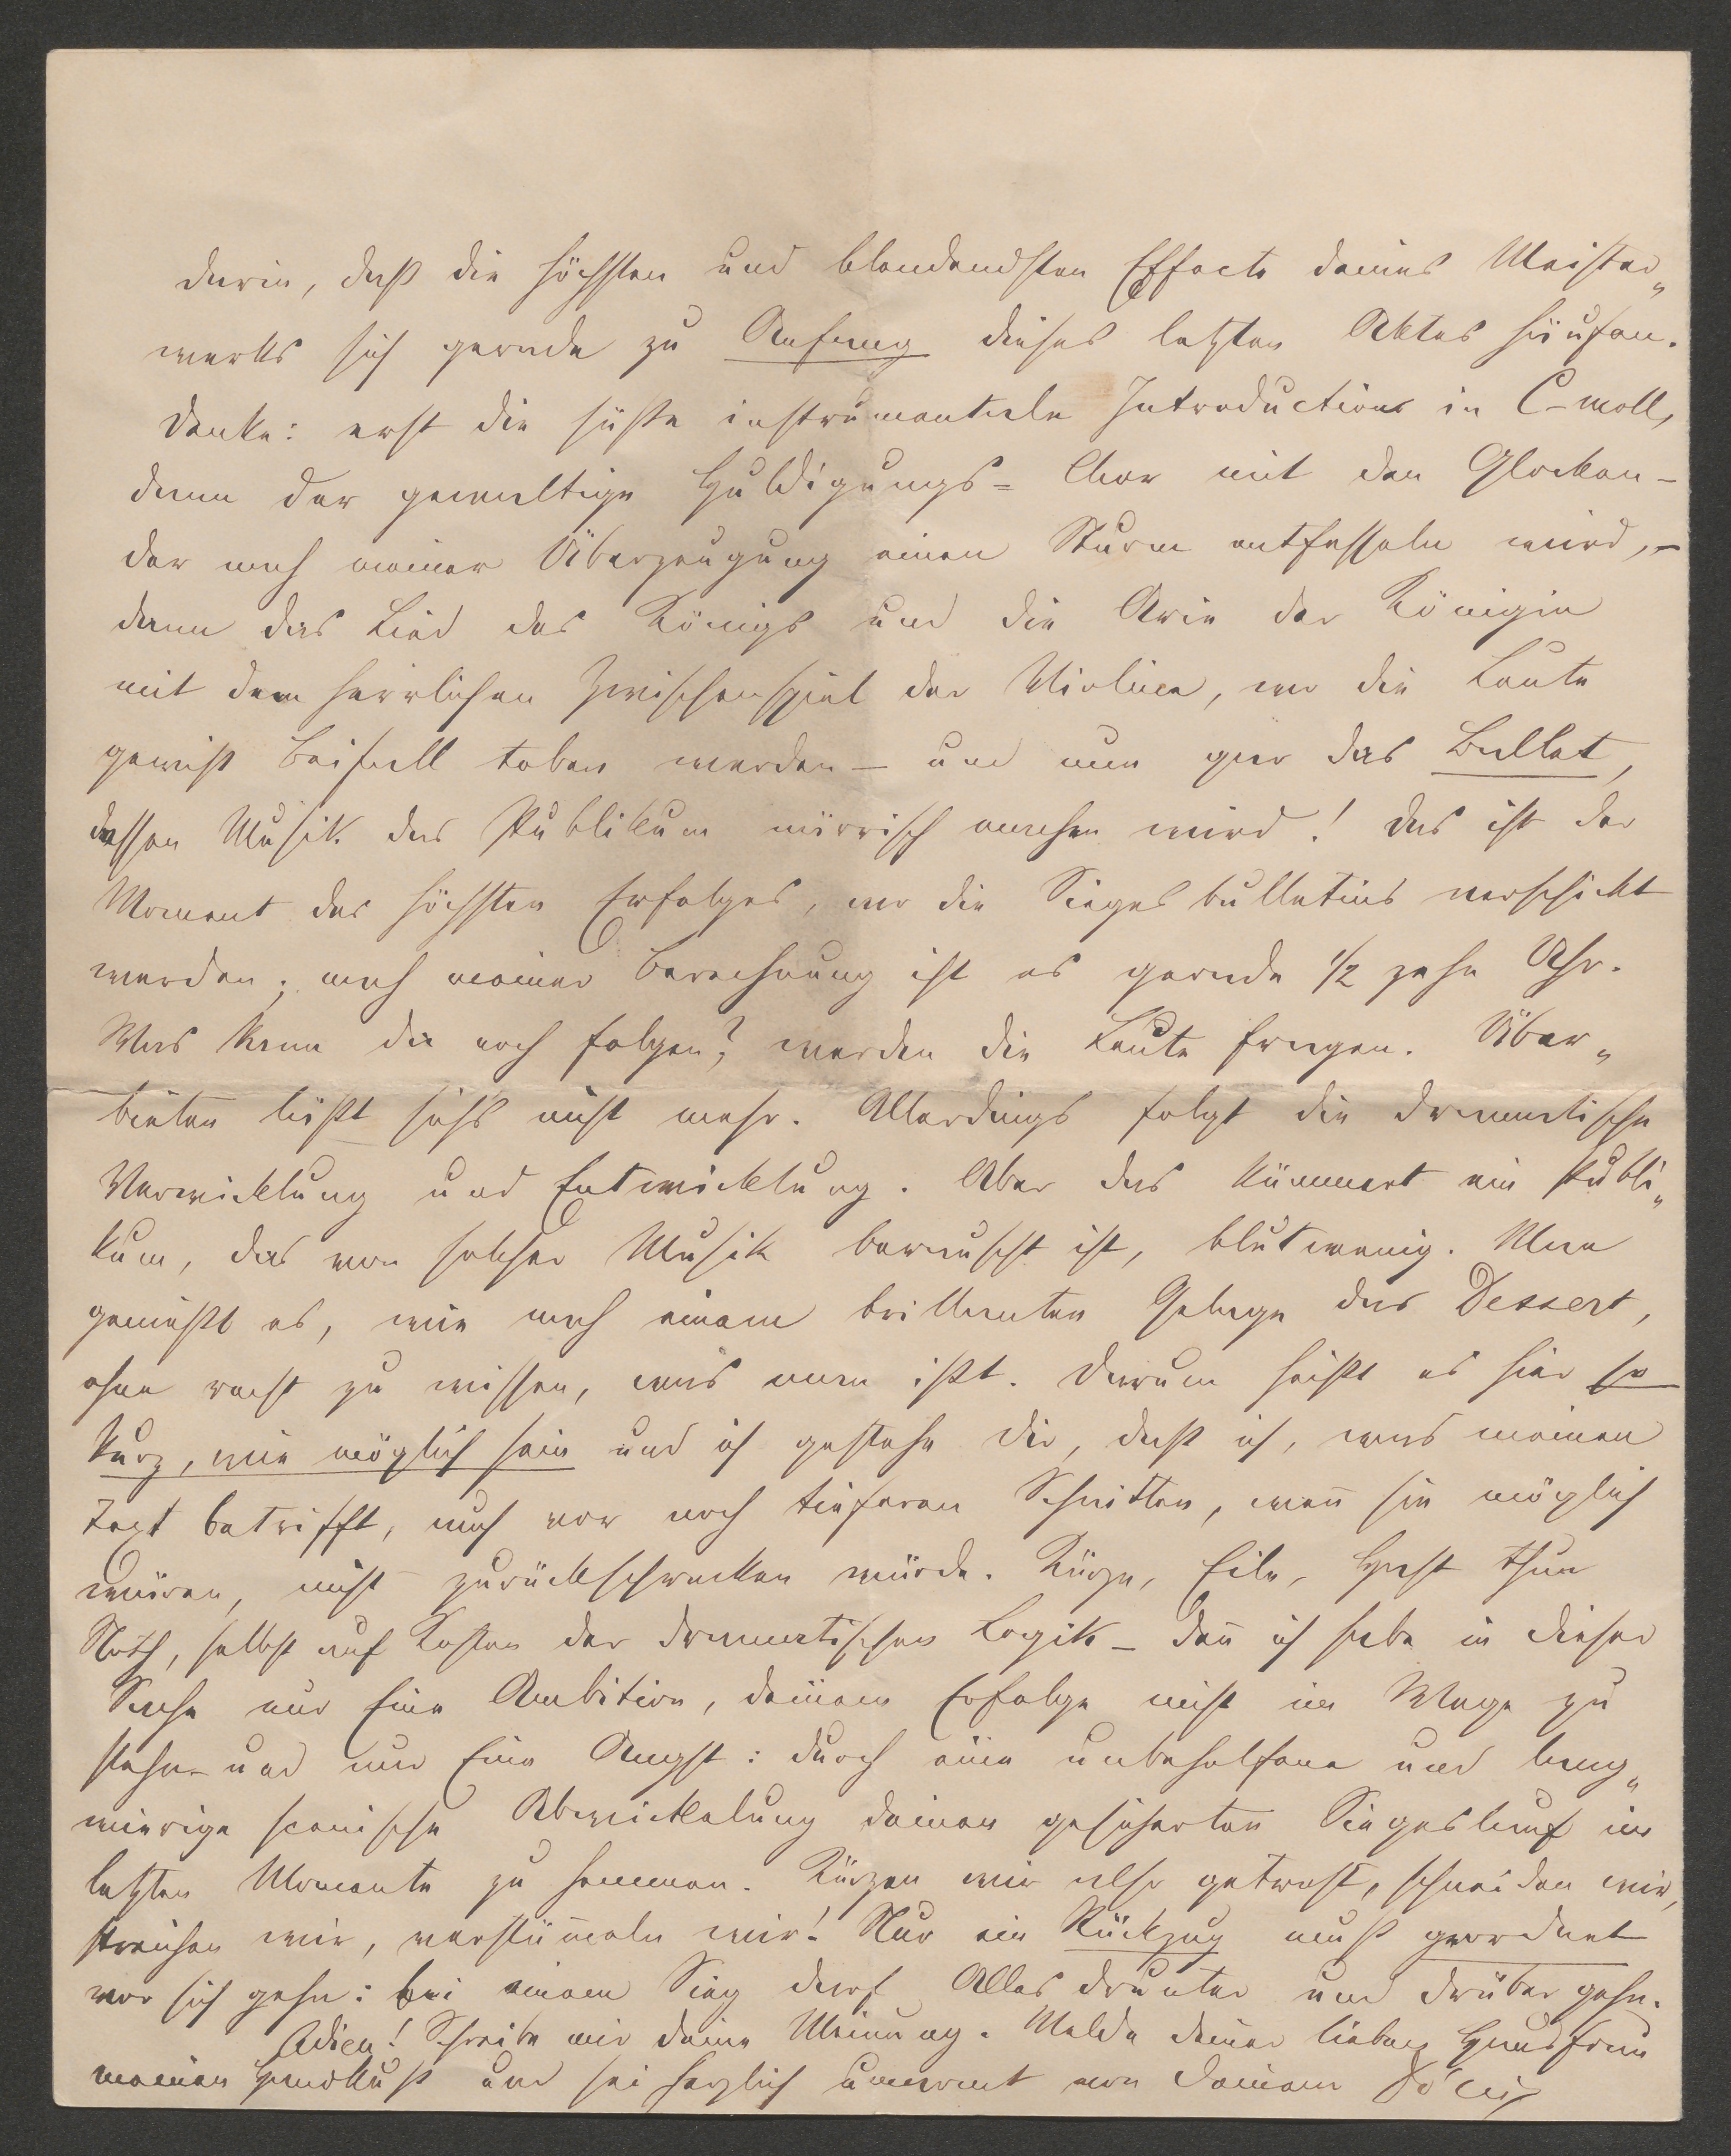 darin, daß die höchsten und blendendsten Effecte deines Meister„
werks sich gerade zu Anfang dieses letzten Aktes häufen.
Denke: erst die süße instrumentale Introduction in C-moll,
dann der gewaltige Huldigungs= Chor mit den Glocken –
der nach meiner Überzeugung einen Sturm entfesseln wird, –
dann das Lied des Königs und die Arie der Königin
mit dem herrlichen Zwischenspiel der Violine, wo die Leute
gewiß Beifall toben werden – und nun gar das Ballet,
dessen Musik das Publikum närrisch machen wird! Das ist der
Moment des höchsten Erfolges, wo die Siegesbulletins verschickt
werden; nach meiner Berechnung ist es gerade 1/2 zehn Uhr.
Was kann da noch folgen? werden die Leute fragen. Über„
bieten läßt sichs nicht mehr. Allerdings folgt die dramatische
Verwicklung und Entwicklung. Aber das kümmert ein Publi„
kum, das von solcher Musik berauscht ist, blutwenig. Man
genießt es, wie nach einem brillanten Gelage das Dessert,
ohne recht zu wissen, was man ißt. Darum heißt es hier so
kurz, wie möglich sein und ich gestehe dir, daß ich, was meinen
Text betrifft, auch vor noch tieferen Schnitten, wen̄ sie möglich
wären, nicht zurückschrecken würde. Kürze, Eile, Hast thun
Noth, selbst auf Kosten der dramatischen Logik – den̄ ich habe in dieser
Sache nur Eine Ambition, deinem Erfolge nicht im Wege zu
stehn – und nur Eine Angst: durch eine unbeholfene und lang„
wierige scenische Abwickelung deinen gesicherten Siegeslauf im
letzten Momente zu hemmen. Kürzen wir also getrost, schneiden wir,
streichen wir, verstüm̄eln wir! Nur ein Rückzug muß geordnet
vor sich gehn: bei einem Sieg darf Alles drunter und drüber gehn.
Adieu! Schreibe mir deine Meinung. Melde deiner lieben Hausfrau
meinen Handkuß und sei herzlich umarmt von deinem Dóczi